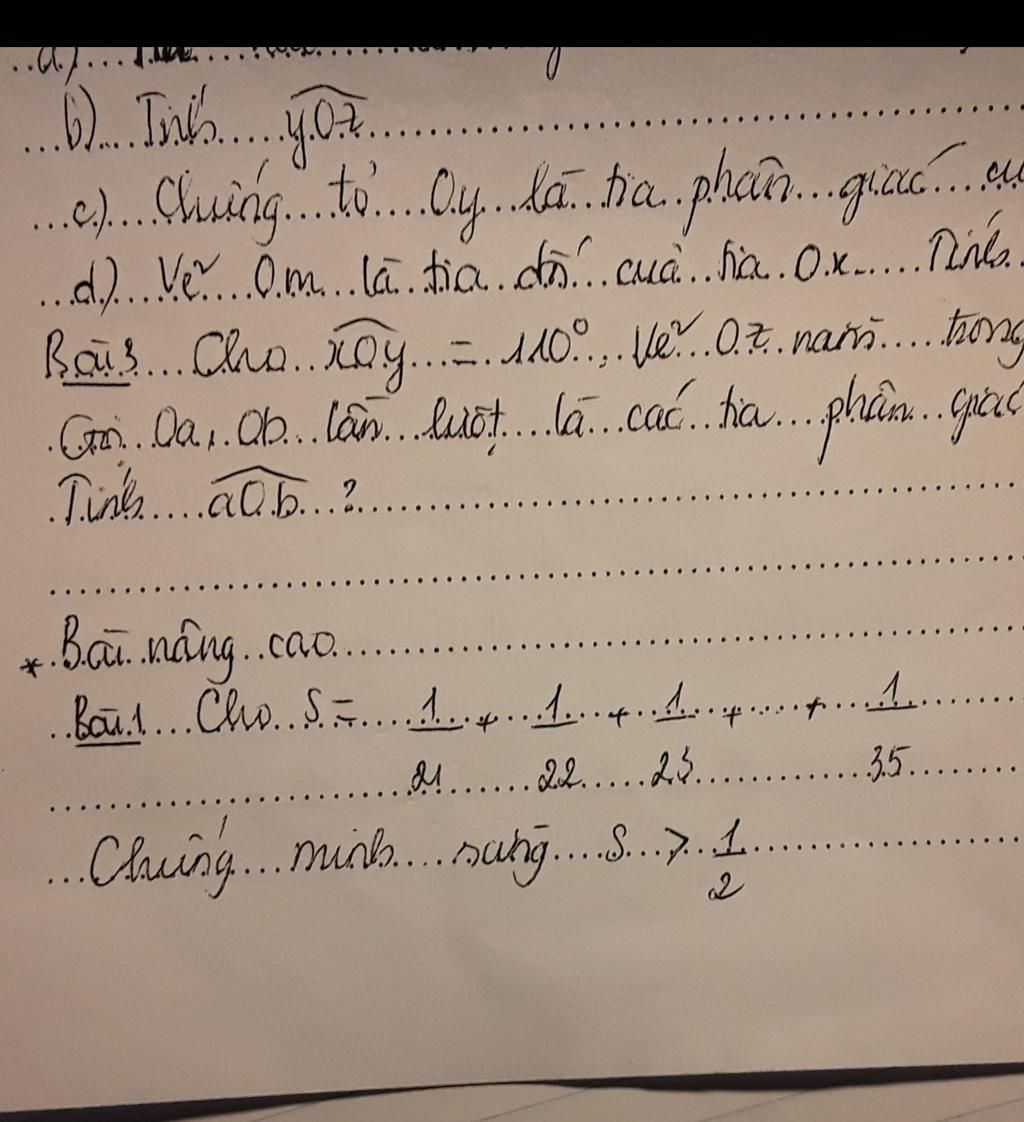 b) Tính yOz
c) Chứng tỏ Oy là tia phân giác
d) Vẽ Om là tia đối của tia Ox. Tính
Bài 3 Cho xOy = 110°, Vẽ Oz nằm trong
Gọi Oa, Ob lần lượt là các tia phân giác
Tính aOb ?
* Bài nâng cao
Bài 1 Cho S = 1/21 + 1/22 + 1/23 + ... + 1/35
Chứng minh rằng S > 1/2